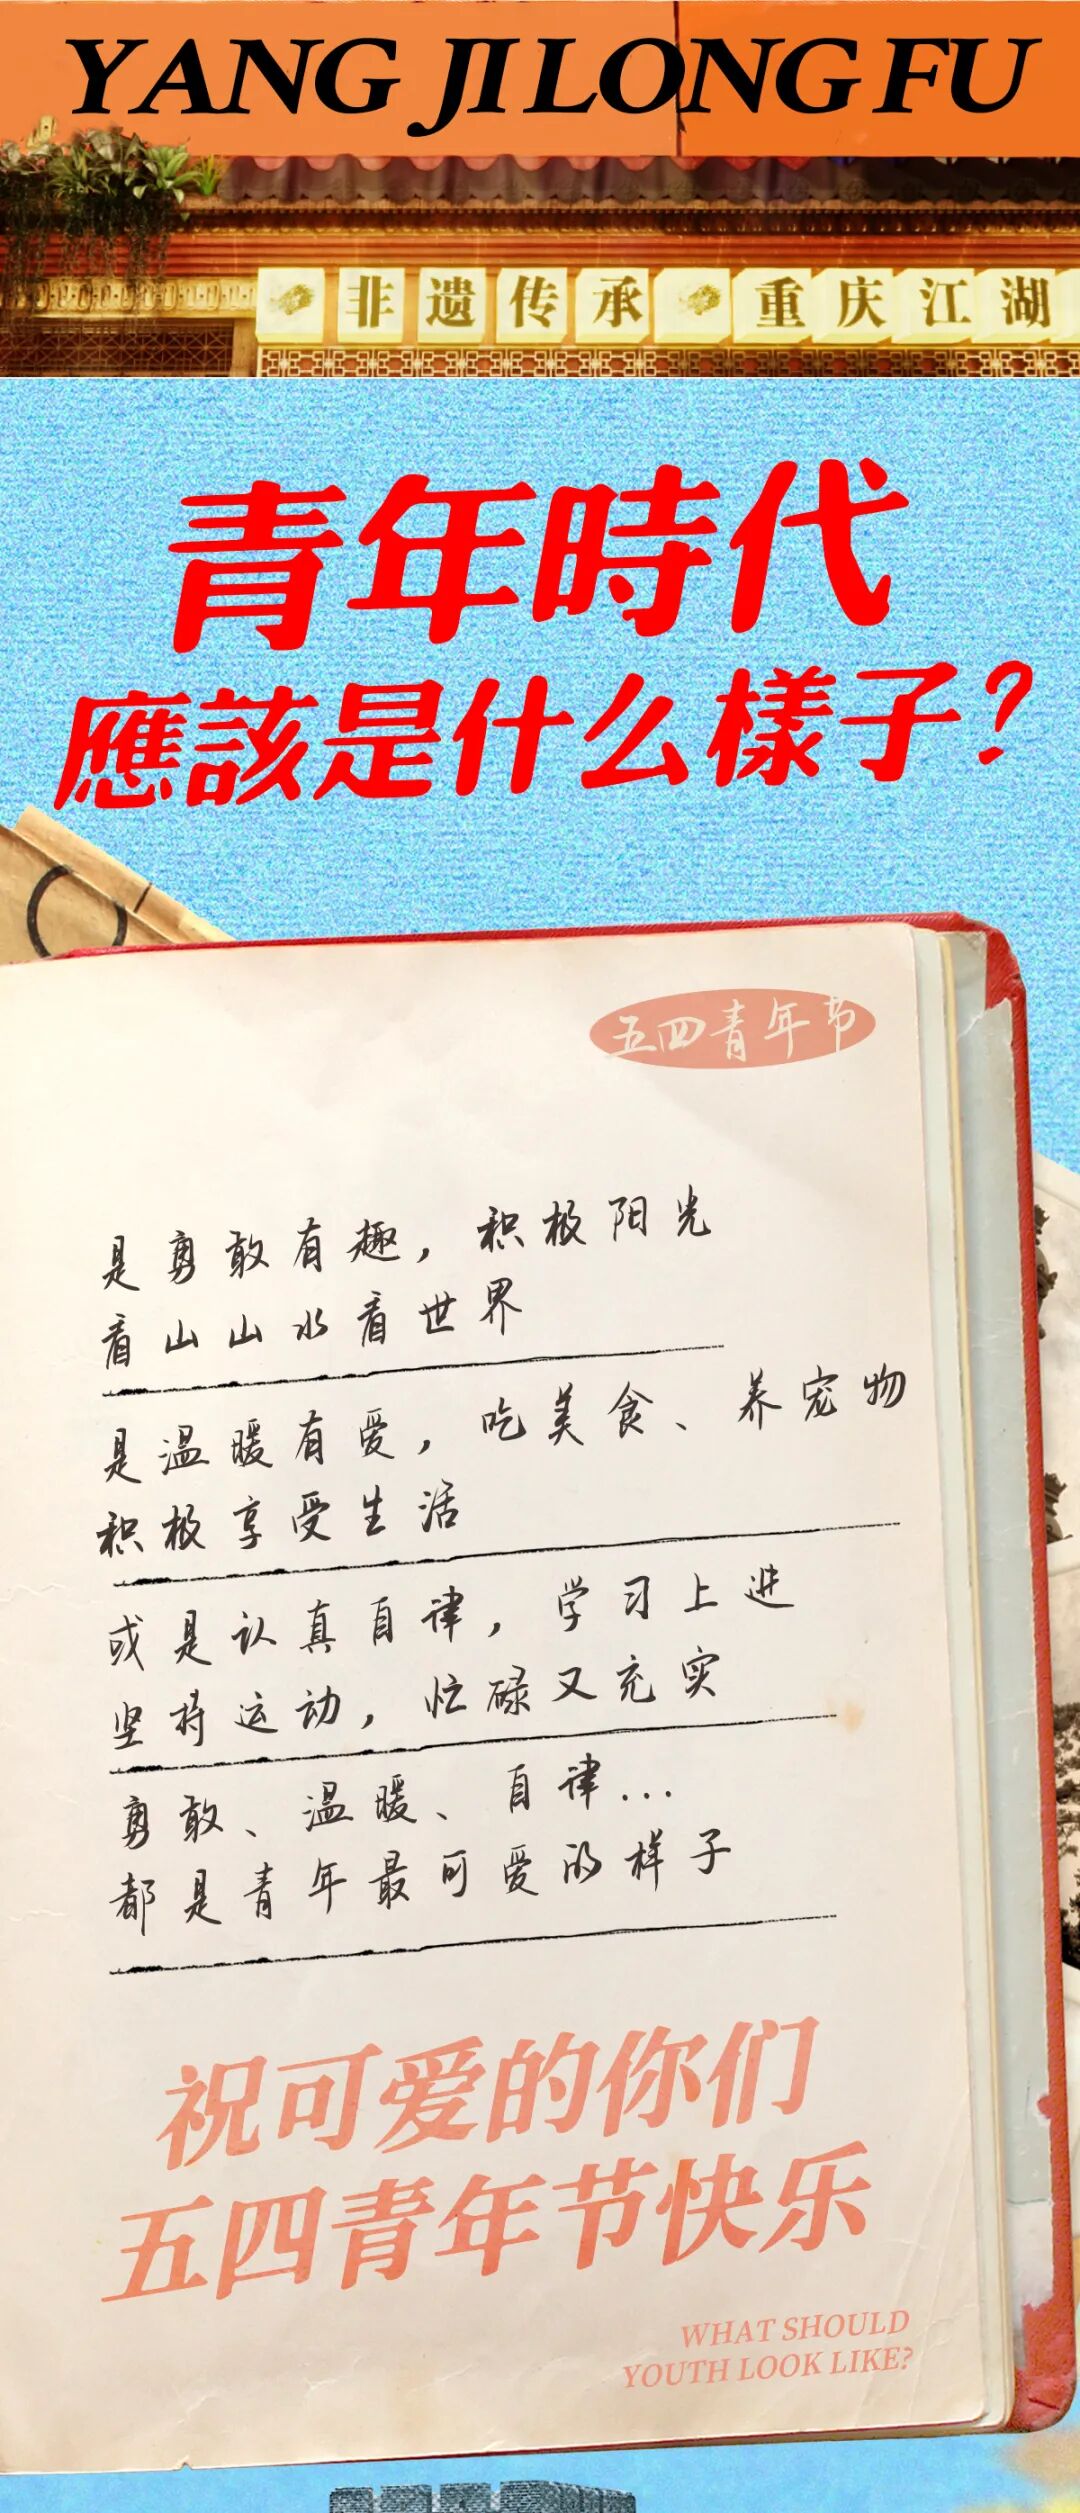 YANG JI LONG FU
非遗传承 重庆江湖
青年時代
應該是什么樣子？
五四青年节
是勇敢有趣，积极阳光
看山山水看世界
是温暖有爱，吃美食、养宠物
积极享受生活
或是认真自律，学习上进
坚持运动，忙碌又充实
勇敢、温暖、自律...
都是青年最可爱的样子
祝可爱的你们
五四青年节快乐
WHAT SHOULD
YOUTH LOOK LIKE?